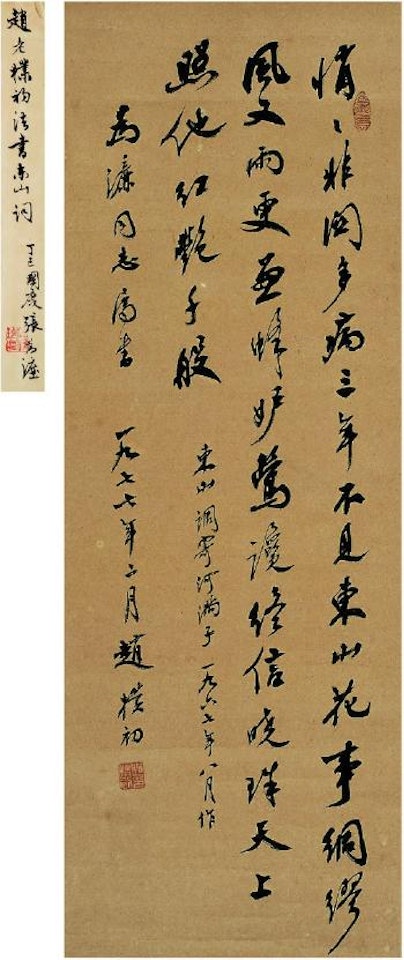 悄〻非関多病三年不見東山花事綢繆
風又雨更兼蜂妒鶯讒終信曉珠天上
照他红艷千般
東山 調寄河满子 一九六七年八月作
為濂同志属書 一九七七年二月 趙樸初
趙老樸初法書東山詞
丁巳國慶張為濂